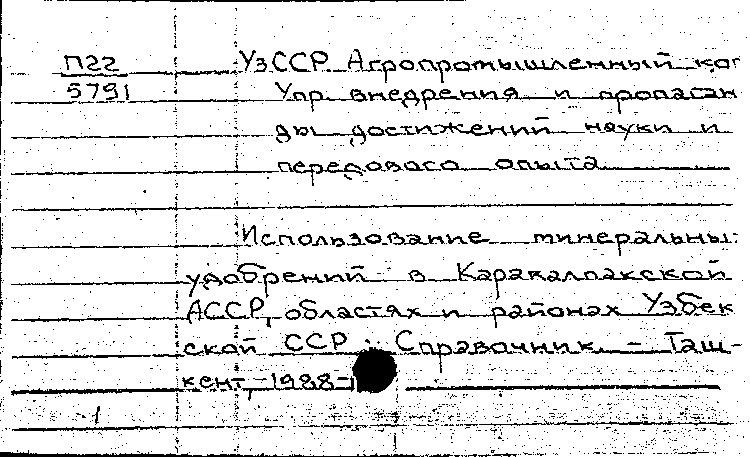 П22 УзССР Агропромышленный ко
5791 Упр. внедрения и пропаган
ды достижений науки и
передового опыта
Использование минеральны
удобрений в Каракалпакской
АССР, областях и районах Узбек
ской ССР: Справочник. - Таш-
кент, 1988-